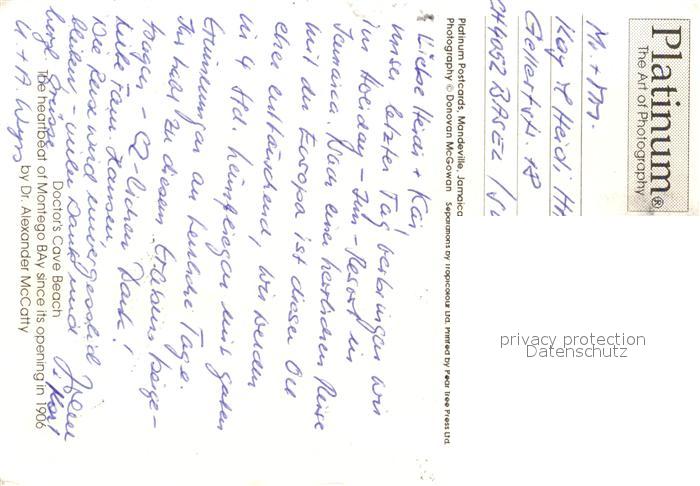 Platinum®
The Art of Photography
Mr. + Mrs.
Kay + Heidi
CH 4052 BASEL /
Platinum Postcards, Mandeville, Jamaica
Photography © Donovan McGowan Separations by Tropicolour Ltd. Printed by Pear Tree Press Ltd.
Liebe Heidi + Kai,
unser letzter Tag verbringen wir
im Holiday-Inn-Resort in
Jamaica. Nach einer herrlichen Reise
mit der Europa ist dieser Ort
eher enttäuschend, wir werden
in 4 Std. heimfliegen mit guten
Erinnerungen an herrliche Tage.
Ihr habt zu diesem Erlebnis beige-
tragen - herzlichen Dank!
liebe Fam.
Die Reise wird unvergesslich
bleiben - vielen Dank und
herzl. Grüsse
U + A. Wyss
Doctor's Cave Beach
The heartbeat of Montego BAy since its opening in 1906
by Dr. Alexander McCatty
privacy protection
Datenschutz